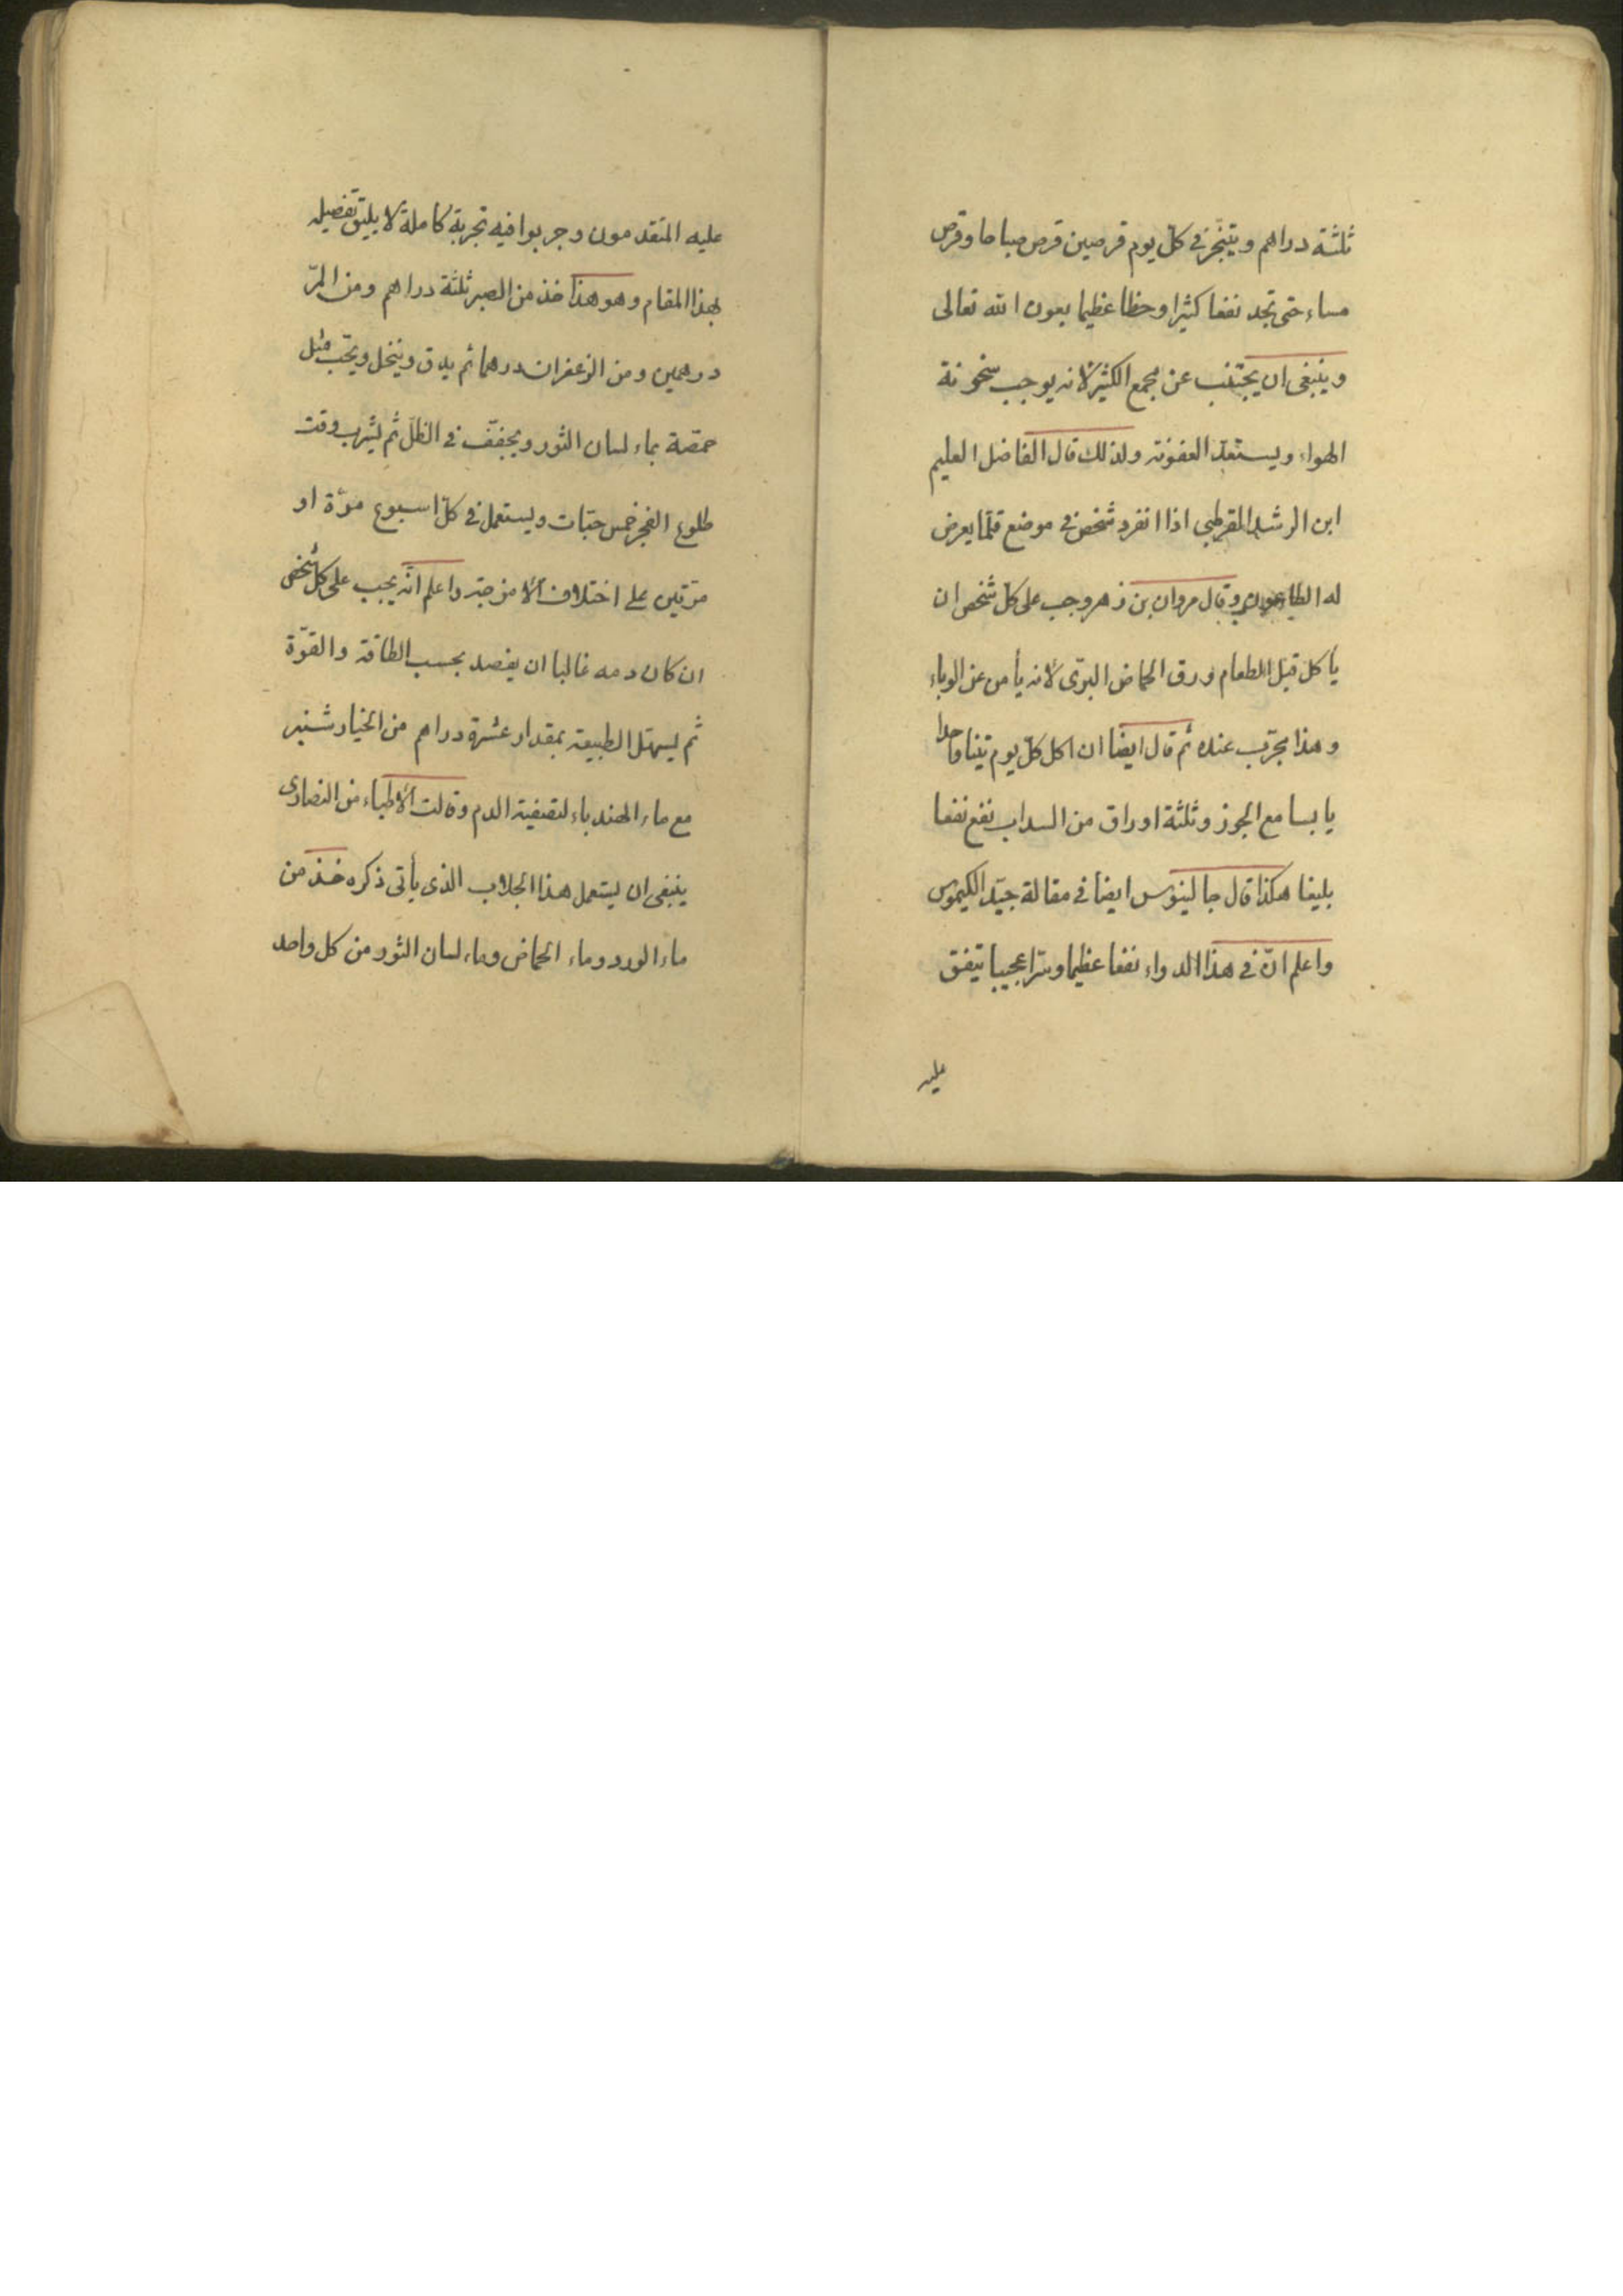 ثلثة دراهم ويتبخّر في كلّ يوم قرصين قرص صباحا وقرص
مساء حتى تجد نفعا كثيرا وحظا عظيما بعون الله تعالى
وينبغي ان يجتنب عن مجمع الكثير لانه يوجب سخونة
الهواء ويستعدّ العفونة ولذلك قال الفاضل العليم
ابن الرشد القرطبي اذا انفرد شخص في موضع قلّما يعرض
له الطاعون وقال مروان بن زهر وجب على كل شخص ان
يأكل قبل الطعام ورق الحماض البرّى لانه يأمن عن الوباء
وهذا مجرّب عنده ثم قال ايضا ان اكل كلّ يوم تينا واحدا
يابسا مع الجوز وثلثة اوراق من السداب نفع نفعا
بليغا هكذا قال جالينوس ايضا في مقالة جيّد الكيموس
واعلم انّ في هذا الدواء نفعا عظيما وسرّا عجيبا يتفق
عليه
عليه المتقدمون وجربوا فيه تجربة كاملة لا يليق تفصيله
بهذا المقام وهو هذا خذ من الصبر ثلثة دراهم ومن المرّ
درهمين ومن الزعفران درهما ثم يدق وينخل ويحبّب مثل
حمصة بماء لسان الثور ويجفّف في الظلّ ثم يشرب وقت
طلوع الفجر خمس حبّات ويستعمل في كلّ اسبوع مرّة او
مرّتين على اختلاف الامزجة واعلم انّه يجب على كل شخص
ان كان دمه غالبا ان يفصد بحسب الطاقة والقوّة
ثم يسهل الطبيعة بمقدار عشرة دراهم من الخيار شنبر
مع ماء الهندباء لتصفية الدم وقالت الاطباء من النصارى
ينبغي ان يستعمل هذا الجلاب الذى يأتى ذكره خذ من
ماء الورد وماء الحماض وماء لسان الثور من كل واحد